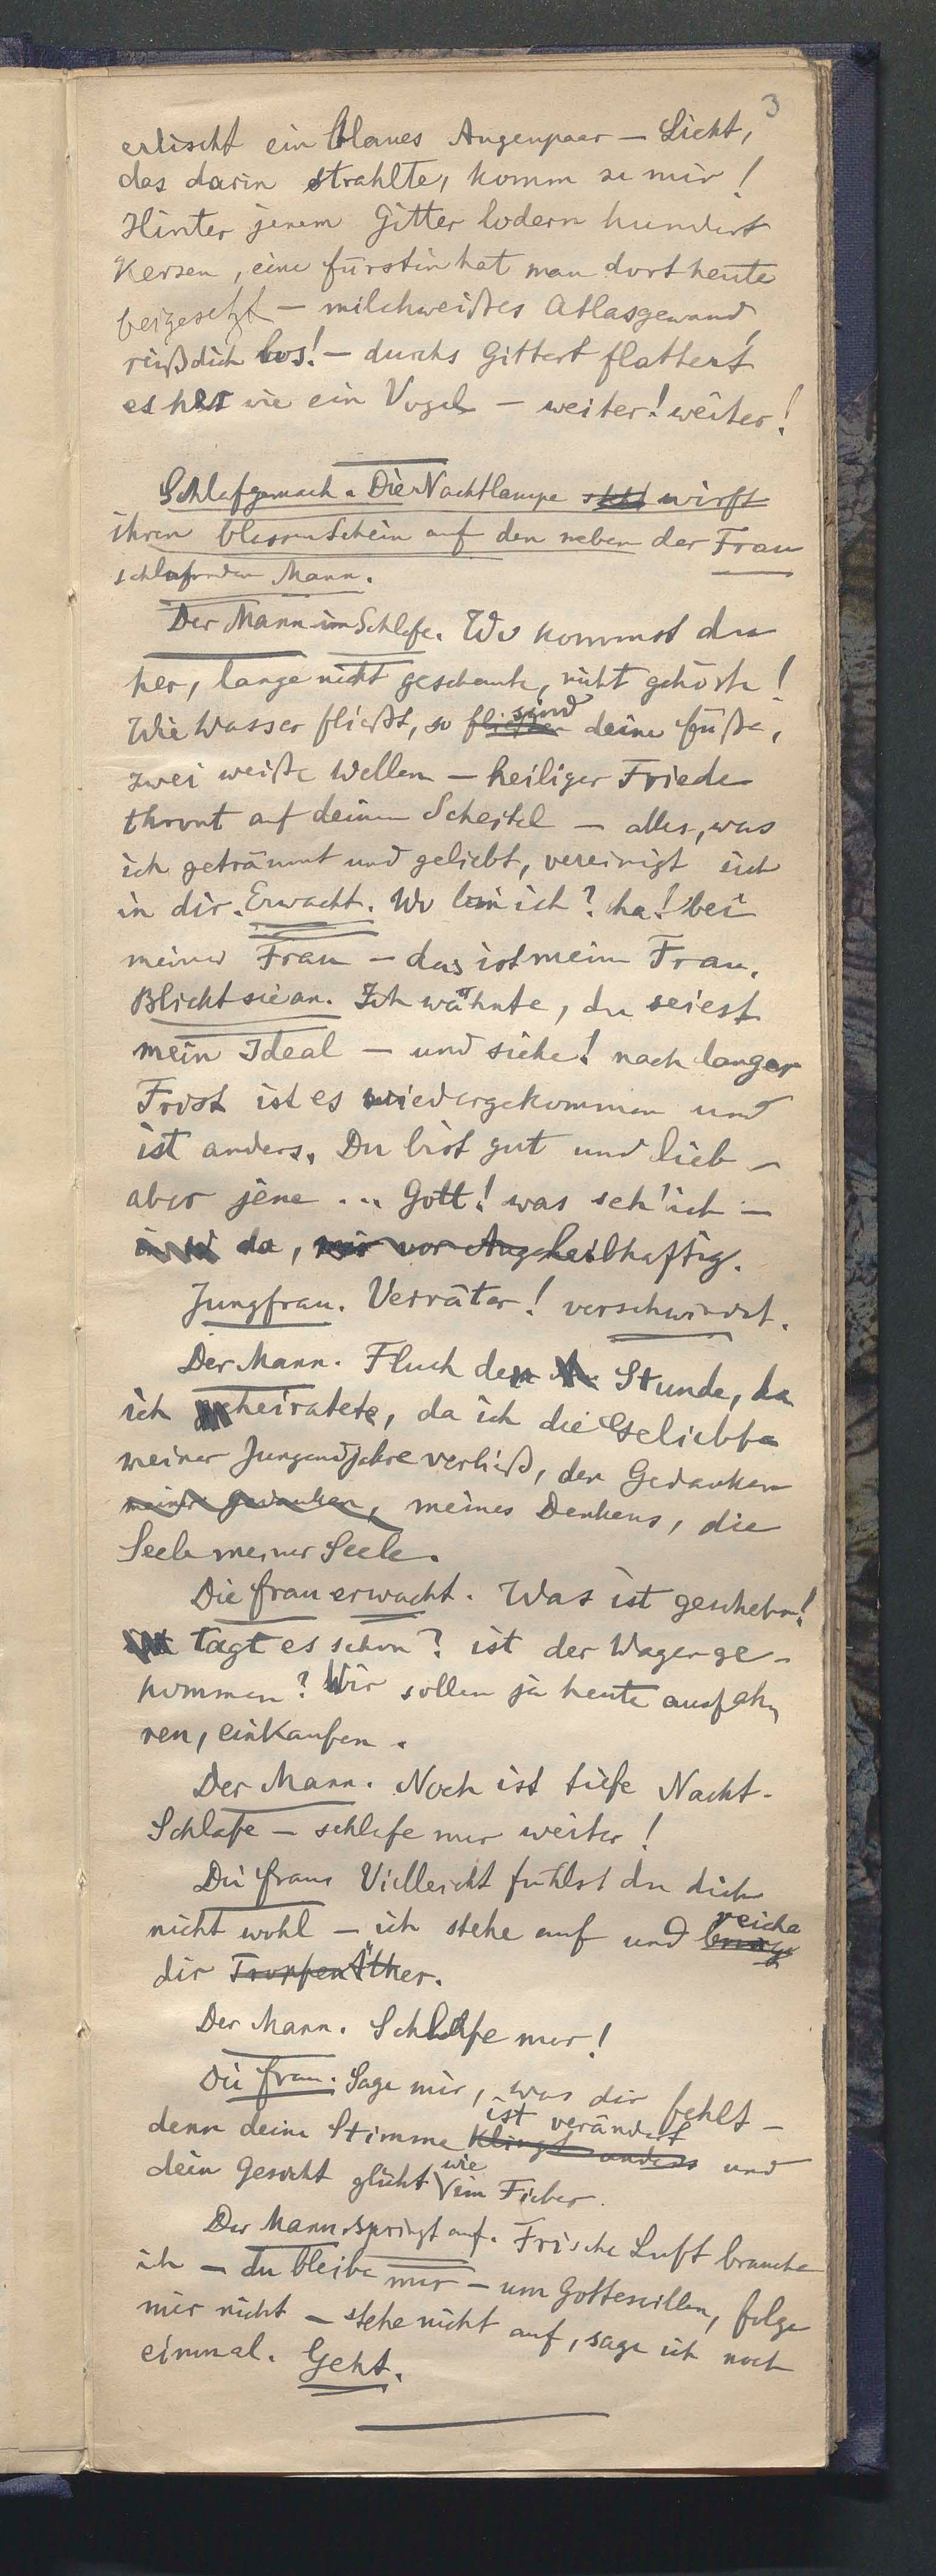 3
erlischt ein blaues Augenpaar — Licht,
das darin strahlte, komm zu mir!
Hinter jenem Gitter lodern hundert
Kerzen, eine Fürstin hat man dort heute
beigesetzt — milchweißes Atlasgewand,
reiß dich los! — durchs Gitter flattert
es her wie ein Vogel — weiter! weiter!
Schlafgemach. Die Nachtlampe wirft
ihren blassen Schein auf den neben der Frau
schlafenden Mann.
Der Mann im Schlafe. Wo kommst du
her, lange nicht geschaute, nicht gehörte!
Wie Wasser fließt, so sind deine Füße,
zwei weiße Wellen — heiliger Friede
thront auf deinem Scheitel — alles, was
ich geträumt und geliebt, vereinigt sich
in dir. Erwacht. Wo bin ich? ha! bei
meiner Frau — das ist meine Frau.
Blickt sie an. Ich wähnte, du seiest
mein Ideal — und siehe! nach langer
Frist ist es wiedergekommen und
ist anders. Du bist gut und lieb —
aber jene ... Gott! was seh' ich —
da, leibhaftig.
Jungfrau. Verräter! verschwindet.
Der Mann. Fluch der Stunde, da
ich heiratete, da ich die Geliebte
meiner Jungendjahre verließ, den Gedanken
meines Denkens, die
Seele meiner Seele.
Die Frau erwacht. Was ist geschehn!
tagt es schon? ist der Wagen ge-
kommen? Wir sollen ja heute ausfah-
ren, einkaufen.
Der Mann. Noch ist tiefe Nacht.
Schlafe — schlafe nur weiter!
Die Frau. Vielleicht fühlst du dich
nicht wohl — ich stehe auf und reiche
dir Äther.
Der Mann. Schlafe nur!
Die Frau. Sage mir, was dir fehlt —
denn deine Stimme ist verändert und
dein Gesicht glüht wie im Fieber.
Der Mann springt auf. Frische Luft brauche
ich — du bleibe nur — um Gotteswillen, folge
mir nicht — stehe nicht auf, sage ich noch
einmal. Geht.